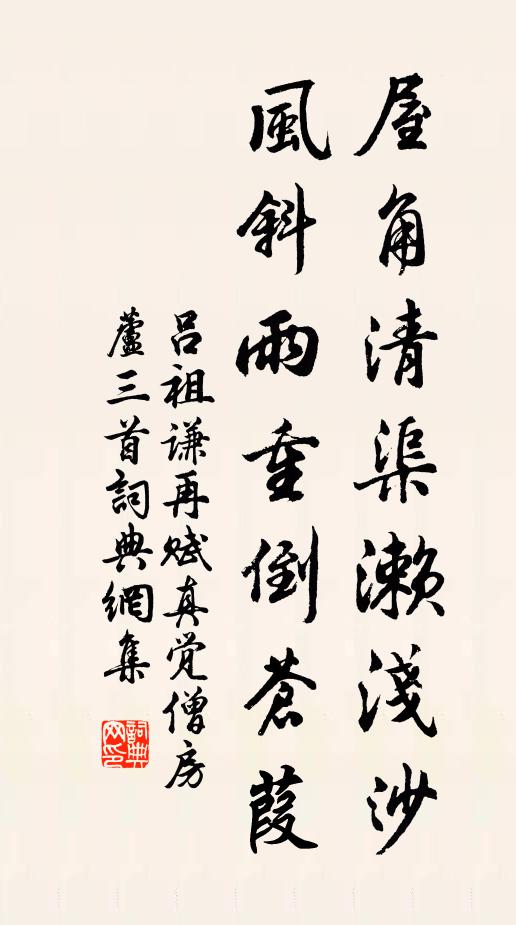 屋角清渠濑淺沙
風斜雨重倒蒼葭
吕祖謙再賦真觉僧房
蘆三首詞典網集
詞典
网印